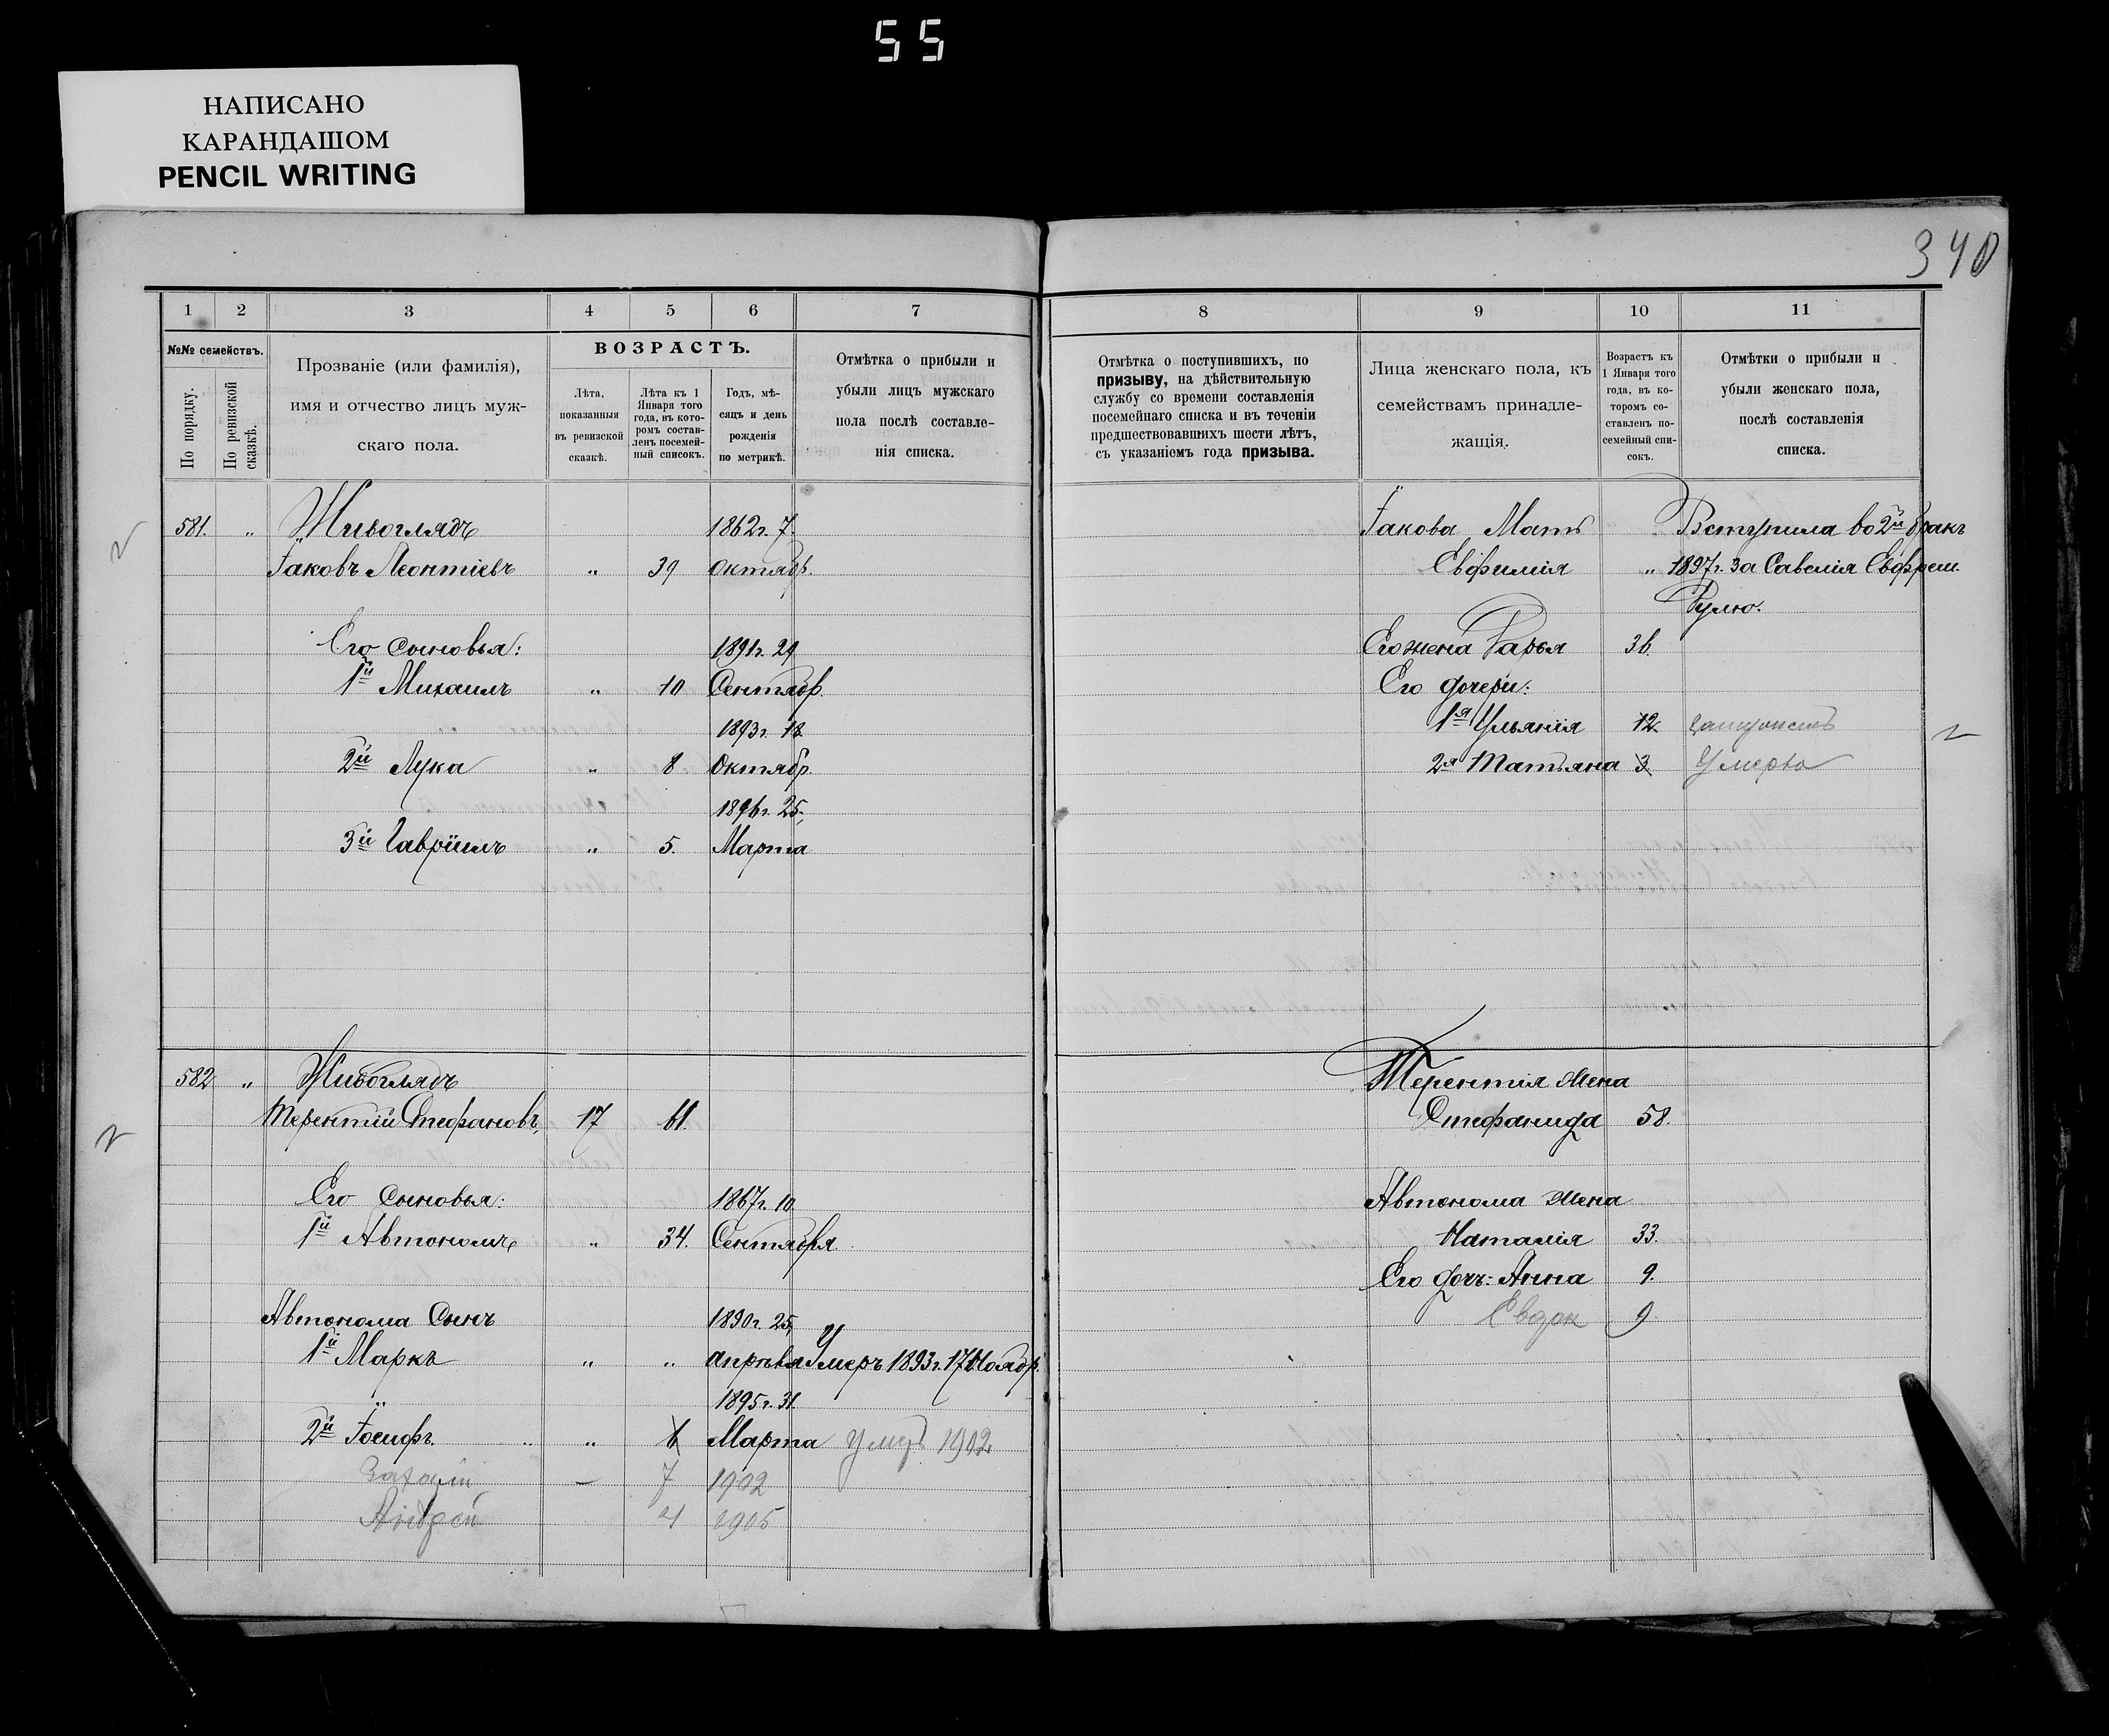 55
НАПИСАНО
КАРАНДАШОМ
PENCIL WRITING
340
1 2 3 4 5 6 7
№№ семействъ.
По порядку.
По ревизской сказкѣ.
Прозваніе (или фамилія),
имя и отчество лицъ муж-
скаго пола.
ВОЗРАСТЪ.
Лѣта,
показанныя
въ ревизской
сказкѣ.
Лѣта къ 1
Января того
года, въ кото-
ромъ состав-
ленъ посемей-
ный список.
Годъ, мѣ-
сяцъ и день
рожденія
по метрикѣ.
Отмѣтка о прибыли и
убыли лицъ мужскаго
пола послѣ составле-
нія списка.
581. „ Живоглядъ 1862 г. 7.
Іаковъ Леонтіевъ „ 39 октябр.
Его сыновья: 1891 г. 29
1й Михаилъ „ 10 Сентябр.
1893 г. 18.
2й Лука „ 8 Октябр.
1896 г. 25.
3й Гавріилъ „ 5. Марта
582 „ Живоглядъ
Терентій Стефановъ, 17 61.
Его Сыновья: 1867 г. 10
1й Автономъ „ 34. Сентября
Автонома Сынъ 1890 г. 25,
1й Маркъ „ „ апрѣля Умеръ 1893 г. 17 Ноябр.
1895 г. 31.
2й Іосифъ. „ 6 Марта умеръ 1902
Захарій — 7 1902
Андрей 4 1905
8 9 10 11
Отмѣтка о поступившихъ, по
призыву, на дѣйствительную
службу со времени составленія
посемейнаго списка и въ теченіи
предшествовавшихъ шести лѣтъ,
съ указаніемъ года призыва.
Лица женскаго пола, къ
семействамъ принадле-
жащія.
Возрастъ къ
1 Января того
года, въ ко-
торомъ со-
ставленъ по-
семейный спи-
сокъ.
Отмѣтки о прибыли и
убыли женскаго пола,
послѣ составленія
списка.
Іакова Мать Вступила во 2й бракъ
Евфимія „ 1897 г. за Савелія Евфрем.
Рулю.
Его жена Дарья 36.
Его дочери:
1я Ульянія 12.
2я Татьяна 3 Умерла
Терентія жена
Стефанида 58.
Автонома жена
Наталія 33.
Его дочь: Анна 9.
Евдок 9